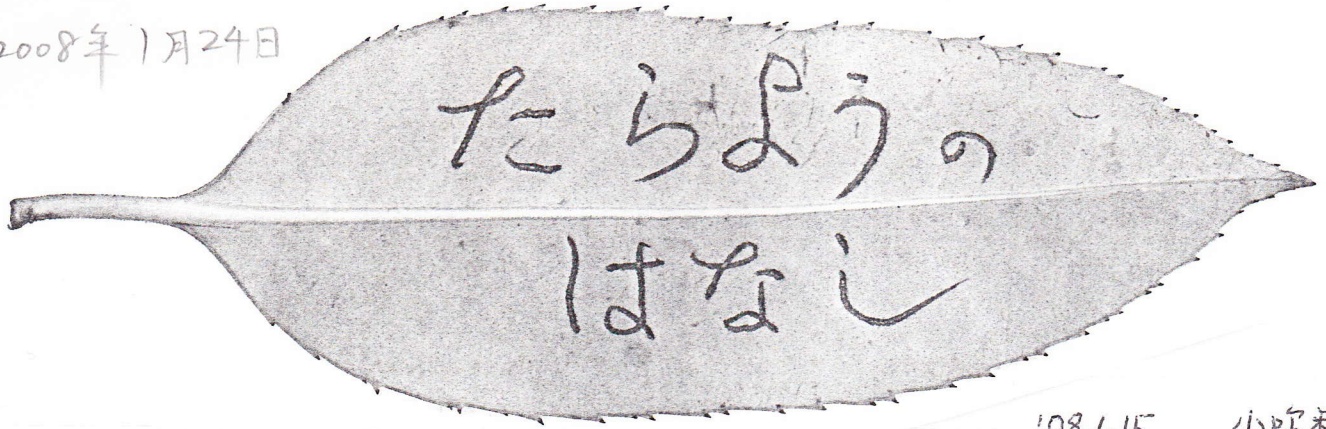 2008年1月24日
たらようの
はなし